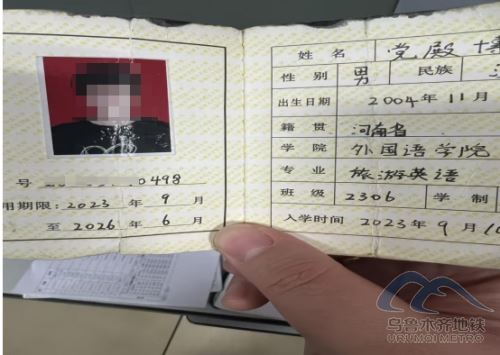 姓名 党殿博
性别 男 民族
出生日期 2004年11月
籍贯 河南省
学院 外国语学院
专业 旅游英语
班级 2306 学制
入学时间 2023年9月10
号 0498
用期限: 2023 年 9 月
至 2026 年 6 月
乌鲁木齐地铁
URUMQI METRO